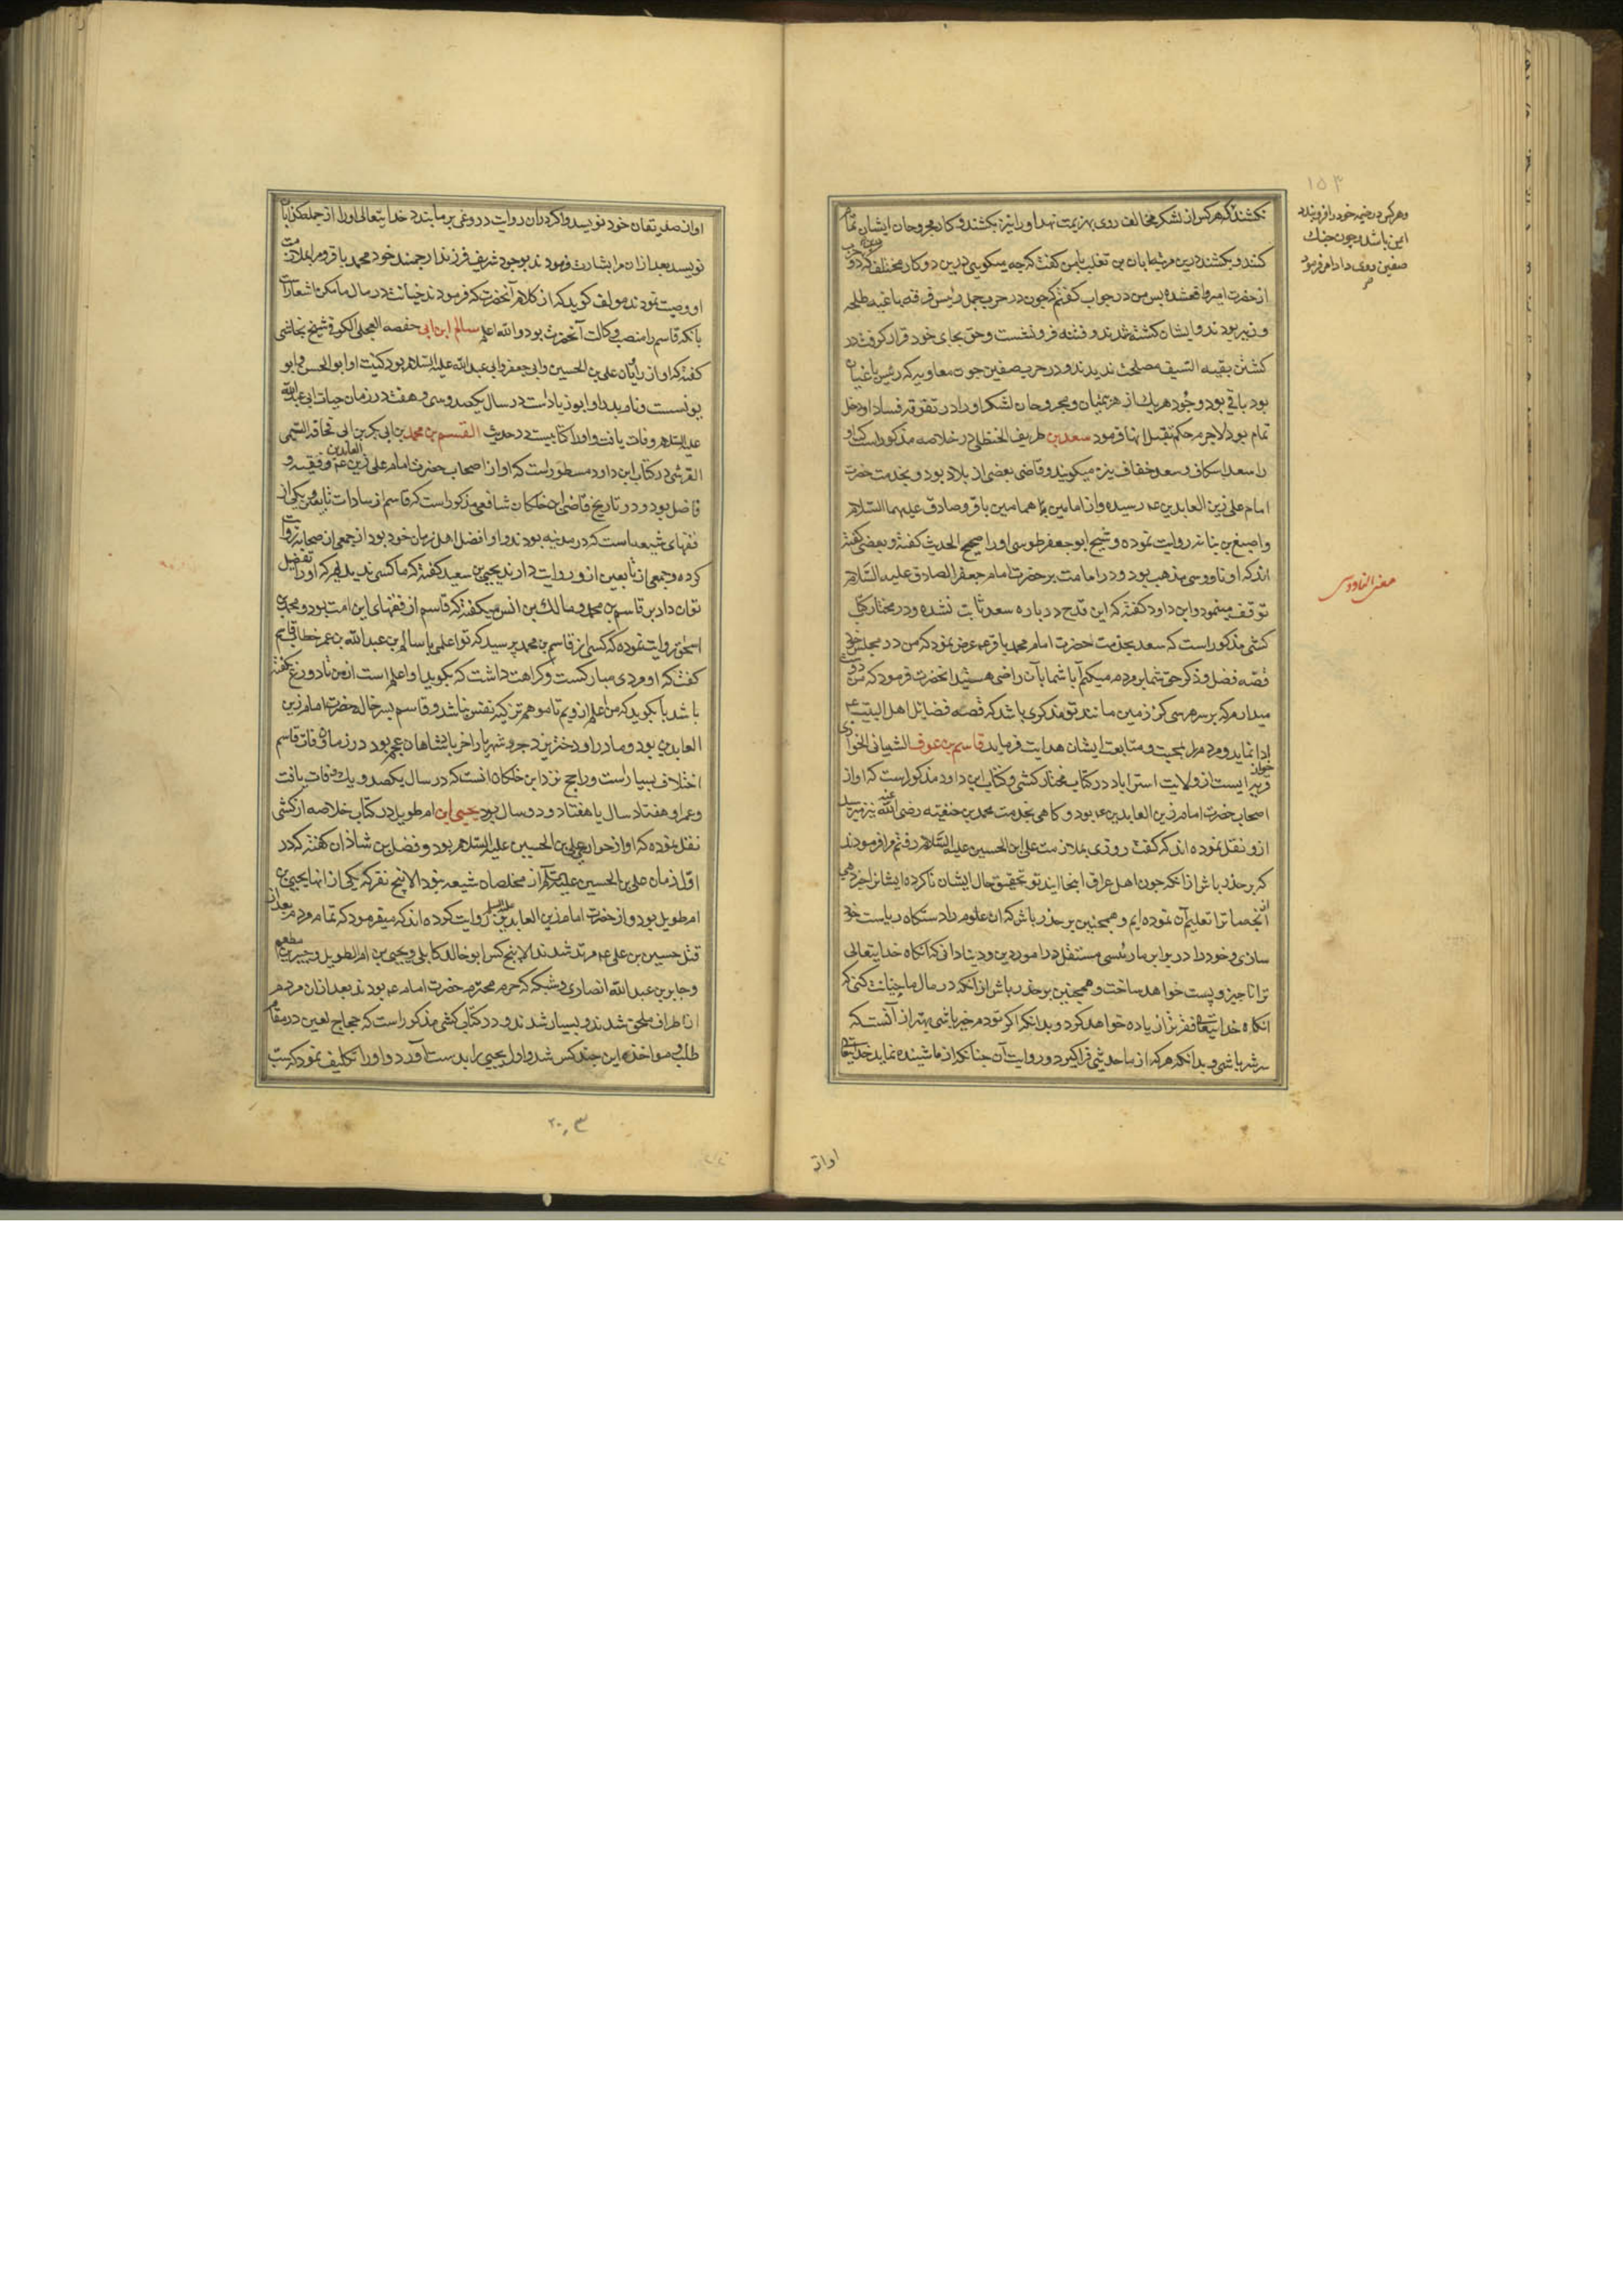 ۱۵۳
وهرکس در خیمه خود را فرو بندد
امن باشد و چون جنك
صفین روی داد امر فرمود
نکشند و هرکس از لشکر مخالف روی بهزیمت نهد او را نیز نکشند و کار مجروحان ایشان تمام
کنند و بکشند درین مرتبه ابان بن تغلب بامن کفت که چه میکویی درین دو کار مختلف که در دو
از حضرت امیر واقع شده پس من در جواب کفتم که چون در حرب جمل رئیس فرقه باغیه طلحه
و زبیر بودند و ایشان کشته شدند و فتنه فرو نشست و حق بجای خود قرار کرفت در
کشتن بقیه السیف مصلحت ندیدند و در حرب صفین چون معاویه که رئیس باغیان
بود باقی بود وجود هر یك از هزیمتیان و مجروحان لشکر او را در تفرقه و فساد او دخل
تمام بود لاجرم حکم بقتل انها فرمود سعد بن طریف الحنظلی در خلاصه مذکور است که او
را سعد اسکاف و سعد خفاف نیز میکویند و قاضی بعضی از بلاد بود و بخدمت حضرت
امام علی زین العابدین عم رسیده و از امامین همامین باقر و صادق علیهما السلام
و اصبغ بن نباته روایت نموده و شیخ ابو جعفر طوسی او را صحیح الحدیث کفته و بعضی کفته
اند که او ناووسی مذهب بود و در امامت بر حضرت امام جعفر الصادق علیه السلام
توقف مینمود و ابن داود کفته که این قدح در باره سعد ثابت نشده و در مختار کتاب
معنی الناووسی
کشی مذکور است که سعد بخدمت حضرت امام محمد باقر عم عرض نمود که من در مجلس خود
قصه فضل و ذکر حق شما بر مردم میکنم آیا شما بآن راضی هستید آنحضرت فرمود که من دوست
میدارم که بر سر هر سی کز زمین مانند تو مذکری باشد که قصه فضائل اهل البیت عم
ادا نماید و مردم را بمحبت و متابعت ایشان هدایت فرماید قاسم بن عوف الشیبانی الخواری
خوار دیهیست از ولایت استراباد در کتاب مختار کشی و کتاب ابن داود مذکور است که او از
اصحاب حضرت امام زین العابدین عم بود و کاهی بخدمت محمد بن حنفیه رضی الله عنه نیز میرسید
ازو نقل نموده اند که کفت روزی بملازمت علی ابن الحسین علیه السلام رفتم مرا فرمودند
که بر حذر باش از انکه چون اهل عراق اینجا ایند تو تحقیق حال ایشان ناکرده ایشانرا خبر دهی
انچه ما ترا تعلیم آن نموده ایم و همچنین بر حذر باش که ان علوم را دستکاه ریاست خود
سازی و خود را در برابر ما رئیسی مستقل در امور دین و دنیا دانی که انکاه خدایتعالی
ترا ناچیز و پست خواهد ساخت و همچنین بر حذر باش از انکه در مال ما خیانت کنی که
انکاه خدایتعالی فقر ترا زیاده خواهد کرد و بدانکه اکر تو دم خیر باشی بهتر از آنست که
سر شر باشی و بدانکه هر که از ما حدیثی فرا کیرد و روایت آن چنانکه از ما شنیده نماید خدایتعالی
او از
او از صدیقان خود نویسد و اکر در ان روایت دروغی بر ما بندد خدایتعالی او را از جمله کذابان
نویسد بعد از ان مرا بشارت فرمودند بوجود شریف فرزند ارجمند خود محمد باقر و مرا بملازمت
او وصیت نمودند مولف کوید که از کلام آنحضرت که فرمودند خیانت در مال ما مکن اشعار است
بآنکه قاسم را منصب وکالت آنحضرت بود والله اعلم سالم ابن ابی حفصه العجلی الکوفی شیخ نجاشی
کفته که او از راویان علی بن الحسین و ابی جعفر و ابی عبد الله علیه السلام بود کنیت او ابو الحسن و ابو
یونسست و نام پدر او ابو زیاد است در سال یکصد و سی و هفت در زمان حیات ابی عبد الله
علیه السلام وفات یافت و او را کتابیست در حدیث القسم بن محمد بن ابی بکر بن ابی قحافه التیمی
القرشی در کتاب ابن داود مسطور است که او از اصحاب حضرت امام علی زین العابدین عم و فقیه و
فاضل بود و در تاریخ قاضی ابن خلکان شافعی مذکور است که قاسم از سادات تابعین و یکی از
فقهای شیعه است که در مدینه بودند و او افضل اهل زمان خود بود از جمعی از صحابه روایت
کرده و جمعی از تابعین ازو روایت دارند یحیی بن سعید کفته که ما کسی ندیدیم که او را تفضیل
توان داد بر قاسم بن محمد و مالك بن انس میکفته که قاسم از فقهای این امت بود و محمد بن
اسحق روایت نموده که کسی از قاسم بن محمد پرسید که تو اعلمی یا سالم بن عبد الله بن عمر خطاب قاسم
کفت که او مردی مبارکست و کراهت داشت که بکوید او اعلم است از من تا دروغ نکفته
باشد یا بکوید که من اعلم از ویم تا موهم تزکیه نفس نباشد و قاسم پسر خاله حضرت امام زین
العابدین بود و مادر او دختر یزدجرد شهریار اخر پادشاهان عجم بود در زمان وفات قاسم
اختلاف بسیار است و راجح نزد ابن خلکان انست که در سال یکصد و یك وفات یافت
و عمر او هفتاد سال یا هفتاد و دو سال بود یحیی ابن ام طویل در کتاب خلاصه از کشی
نقل نموده که او از حواری علی بن الحسین علیه السلام بود و فضل بن شاذان کفته که در
اول زمان علی بن الحسین علیه السلام از مخلصان شیعه نبود الا پنج نفر که یکی از انها یحیی بن
ام طویل بود و از حضرت امام زین العابدین علیه السلام روایت کرده اند که میفرمود که تمام مردم بعد از
قتل حسین بن علی عم مرتد شدند الا پنج کس ابو خالد کابلی و یحیی بن ام الطویل و جبیر بن مطعم
و جابر بن عبد الله انصاری و شبکه که حرم محترم حضرت امام عم بودند بعد از ان مردم
از اطراف ملحق شدند و بسیار شدند و در کتاب کشی مذکور است که حجاج لعین در مقام
طلب و مواخذه این چند کس شد و اول یحیی را بدست آورد و او را تکلیف نمود که سب